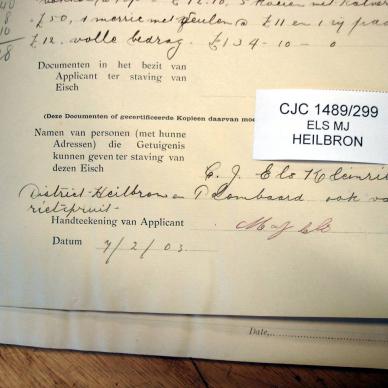 £50, 1 merrie met veulen @ £11 en 1 rij paa
£12. volle bedrag. £134-10-0
Documenten in het bezit van
Applicant ter staving van
Eisch
(Deze Documenten of gecertificeerde Kopieen daarvan moe
CJC 1489/299
ELS MJ
HEILBRON
Namen van personen (met hunne
Adressen) die Getuigenis
kunnen geven ter staving van
dezen Eisch
C. J. Els Kleinrie
District-Heilbron en P Lombaard ook va
rietspruit-
Handteekening van Applicant
M J Els
Datum 7/2/03
Date,